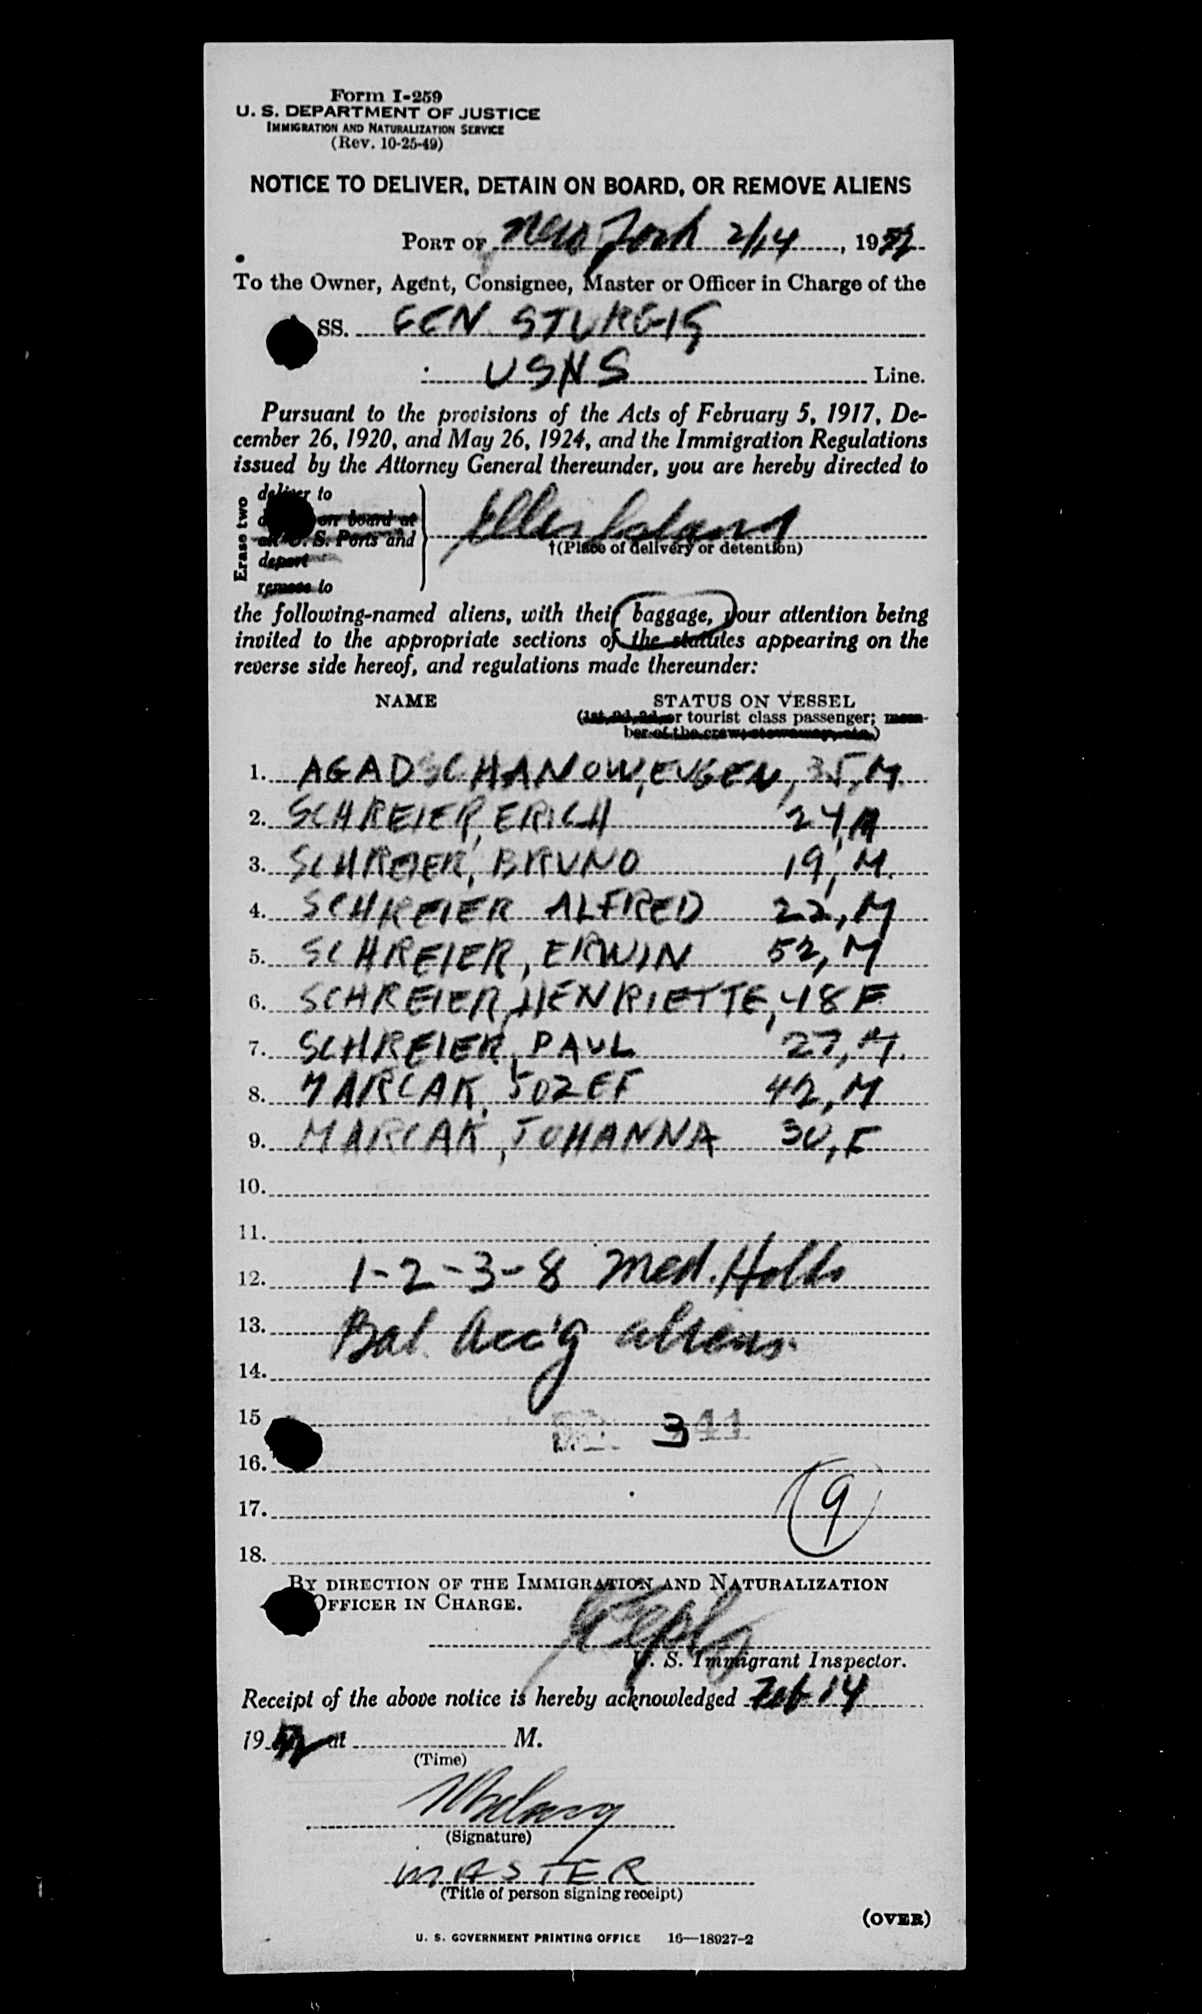 Form I-259
U. S. DEPARTMENT OF JUSTICE
IMMIGRATION AND NATURALIZATION SERVICE
(Rev. 10-25-49)
NOTICE TO DELIVER, DETAIN ON BOARD, OR REMOVE ALIENS
PORT OF New York 2/14, 1952
To the Owner, Agent, Consignee, Master or Officer in Charge of the
SS. GEN. STURGIS
USNS Line.
Pursuant to the provisions of the Acts of February 5, 1917, De-
cember 26, 1920, and May 26, 1924, and the Immigration Regulations
issued by the Attorney General thereunder, you are hereby directed to
Erase two
deliver to
on board at
U. S. Ports and
depart
remove to
Ellis Island
†(Place of delivery or detention)
the following-named aliens, with their baggage, your attention being
invited to the appropriate sections of the statutes appearing on the
reverse side hereof, and regulations made thereunder:
NAME STATUS ON VESSEL
(1st, 2d, 3d, or tourist class passenger; mem-
ber of the crew, stowaway, etc.)
1. AGADSCHANOW, EUGEN, 35, M.
2. SCHREIER, ERICH 24, M
3. SCHREIER, BRUNO 19, M.
4. SCHREIER ALFRED 22, M
5. SCHREIER, ERWIN 52, M
6. SCHREIER, HENRIETTE, 48 F
7. SCHREIER, PAUL 27, M.
8. MARCAK, JOZEF 42, M
9. MARCAK, JOHANNA 30, F
10.
11.
12. 1-2-3-8 Med. Holds
13. Bal. Acc'g aliens.
14.
15 3 41
16.
17. 9
18.
BY DIRECTION OF THE IMMIGRATION AND NATURALIZATION
OFFICER IN CHARGE.
U. S. Immigrant Inspector.
Receipt of the above notice is hereby acknowledged Feb 14
1952 at M.
(Time)
(Signature)
MASTER
(Title of person signing receipt)
(OVER)
U. S. GOVERNMENT PRINTING OFFICE 16—18927-2